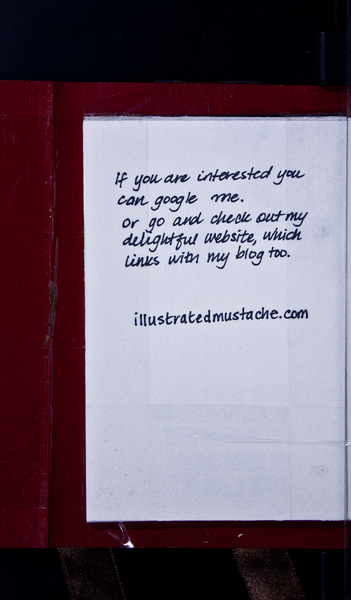 If you are interested you
can google me.
or go and check out my
delightful website, which
links with my blog too.
illustratedmustache.com